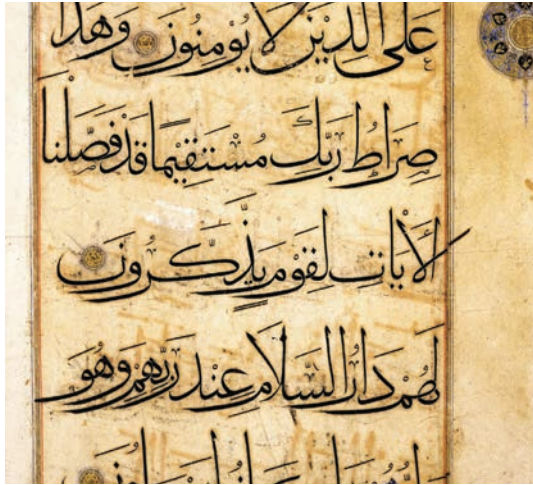 عَلَى الَّذِينَ لَا يُؤْمِنُونَ وَهَذَا
صِرَاطُ رَبِّكَ مُسْتَقِيمًا قَدْ فَصَّلْنَا
الْآيَاتِ لِقَوْمٍ يَذَّكَّرُونَ
لَهُمْ دَارُ السَّلَامِ عِنْدَ رَبِّهِمْ وَهُوَ